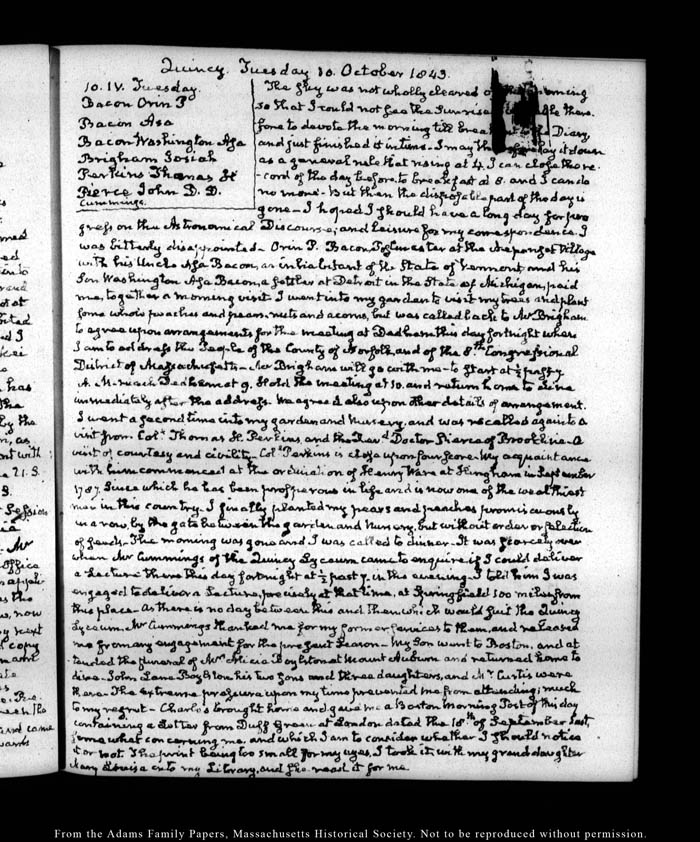 Quincy. Tuesday 10. October 1843.
10. IV. Tuesday.
Bacon Orin P
Bacon Asa
Bacon Washington Asa
Brigham Josiah
Perkins Thomas H
Pierce John D. D.
Cummings.
The sky was not wholly cleared of the morning
so that I could not see the Sunrise there-
fore to devote the morning till break the Diary,
and just finished it in time. I may lay it down
as a general rule that rising at 4. I can close the re-
-cord of the day before, to breakfast at 8. and I can do
no more. But then the disposable part of the day is
gone. I hoped I should have a long day for pro
gress on the Astronomical Discourse, and leisure for my correspondence. I
was bitterly disappointed. Orin P. Bacon, at the Neponset Village
with his Uncle Asa Bacon, an inhabitant of the State of Vermont and his
Son Washington Asa Bacon, a settler at Detroit in the State of Michigan, paid
me, together a morning visit. I went into my garden to visit my trees and plant
some whole peaches and pears, nuts and acorns, but was called back to Mr Brigham
to agree upon arrangements for the meeting at Dedham this day fortnight where
I am to address the People of the County of Norfolk, and of the 8th Congressional
District of Massachusetts. Mr Brigham will go with me. to start at ½ past 7
A. M. reach Dedham at 9. hold the meeting at 10. and return home to dine
immediately after the address. We agreed also upon other details of arrangement.
I went a second time into my garden and Nursery, and was recalled again to a
visit from Coll. Thomas H. Perkins, and the Revd Doctor Pierce of Brookline. A
visit of courtesy and civility. Coll. Perkins is close upon four score. My acquaintance
with him commenced at the ordination of Henry Ware at Hingham in September
1787. Since which he has been prosperous in life and is now one of the wealthiest
men in this country. I finally planted my pears and peaches promiscuously
in a row, by the gate between the garden and Nursery, but without order or selection
of each. The morning was gone and I was called to dinner. It was scarcely over
when Mr Cummings of the Quincy Lyceum came to enquire if I could deliver
a Lecture there this day fortnight at ½ past 7. in the evening. I told him I was
engaged to deliver a Lecture, precisely at that time, at Springfield 100 miles from
this place. As there is no day between this and then which would suit the Quincy
Lyceum, Mr Cummings thanked me for my former services to them, and released
me from any engagement for the present Season. My Son went to Boston, and at
tended the funeral of Mrs Alicia Boylston at Mount Auburn and returned home to
dine. John Lane Boylston his two sons and three daughters, and Mr. Curtis were
there. The extreme pressure upon my time prevented me from attending; much
to my regret. Charles brought home and gave me a Boston Morning Post of this day
containing a Letter from Duff Green at London dated the 18th of September last,
somewhat concerning me, and which I am to consider whether I should notice
it or not. The print being too small for my eyes, I took it with my grand daughter
Mary Louisa into my Library, and she read it for me
From the Adams Family Papers, Massachusetts Historical Society. Not to be reproduced without permission.